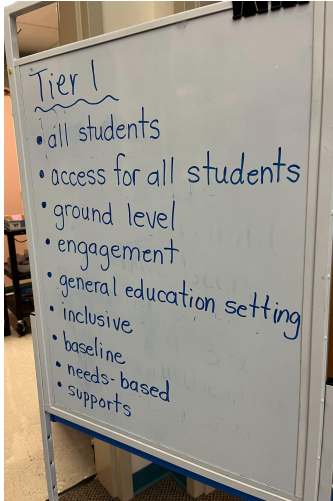 Tier 1
• all students
• access for all students
• ground level
• engagement
• general education setting
• inclusive
• baseline
• needs-based
• supports